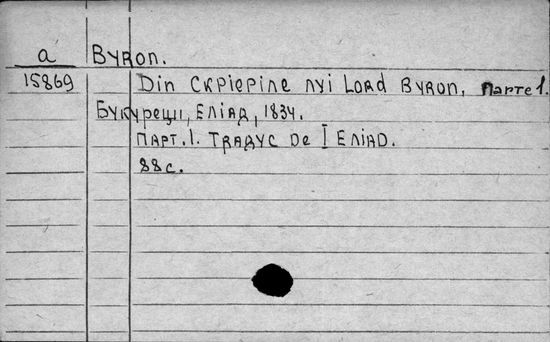 a Byron.
15869 Din Скрієріле луі Lord Byron, Парте 1.
Букурещи, Еліад, 1834.
Парт. 1. Традус De I Еліад.
88 с.